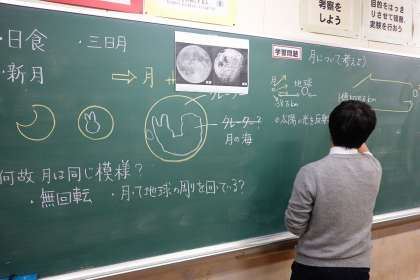 考察
しよう
目的をはっ
きりさせて観察、
実験を行おう
・日食 ・三日月
・新月
⇒月
クレーター
クレーター?
月の海
何故月は同じ模様?
・無回転 ・月って地球の周りを回っている?
学習問題
月について考えよう
月
地球
38万km
○太陽の光を反射